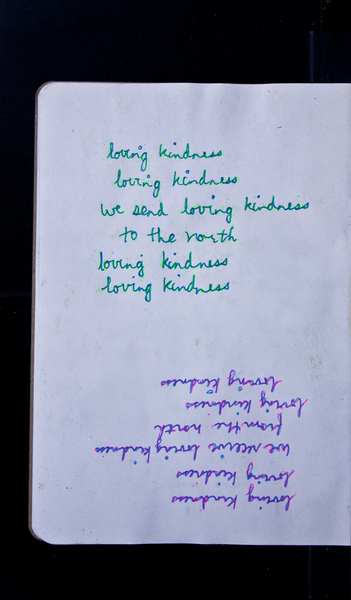 loving kindness
loving kindness
we send loving kindness
to the north
loving kindness
loving kindness
loving kindness
loving kindness
we receive loving kindness
from the north
loving kindness
loving kindness